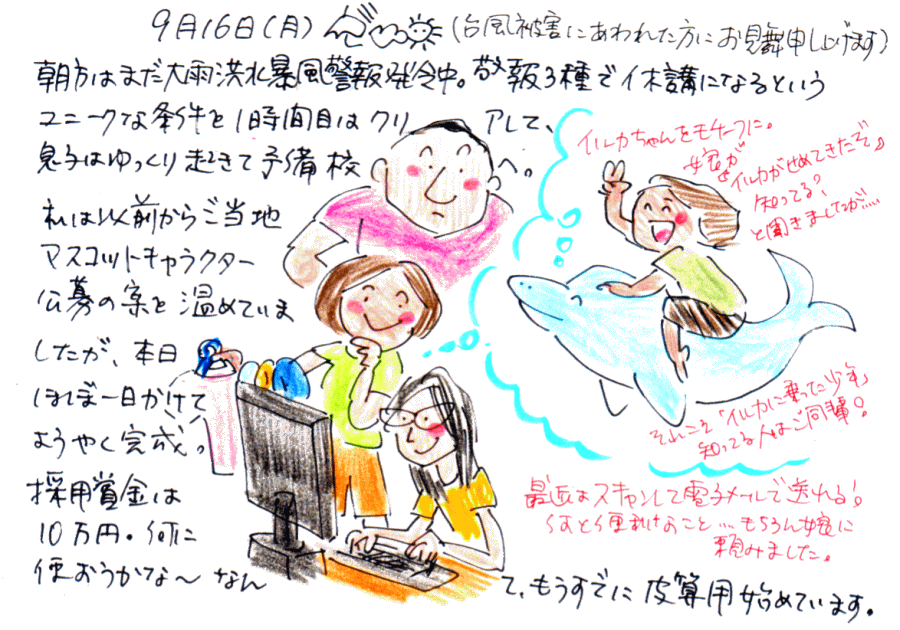 9月16日(月)
(台風被害にあわれた方にお見舞申し上げます)
朝方はまだ大雨洪水暴風警報発令中。警報3種で休講になるという
ユニークな条件を1時間目はクリアして、
息子はゆっくり起きて予備校へ。
私は以前からご当地
マスコットキャラクター
公募の案を温めていま
したが、本日
ほぼ一日かけて
ようやく完成。
採用賞金は
10万円。何に
使おうかな〜なん
て、もうすでに皮算用始めています。
イルカちゃんをモチーフに。
嫁が
「イルカがせめてきたぞ」
知ってる?
と聞きましたが……
それこそ「イルカに乗った少年」
知ってる人はご同輩!
最近はスキャンして電子メールで送れる!
なんと便利なこと…もちろん嫁に
頼みました。